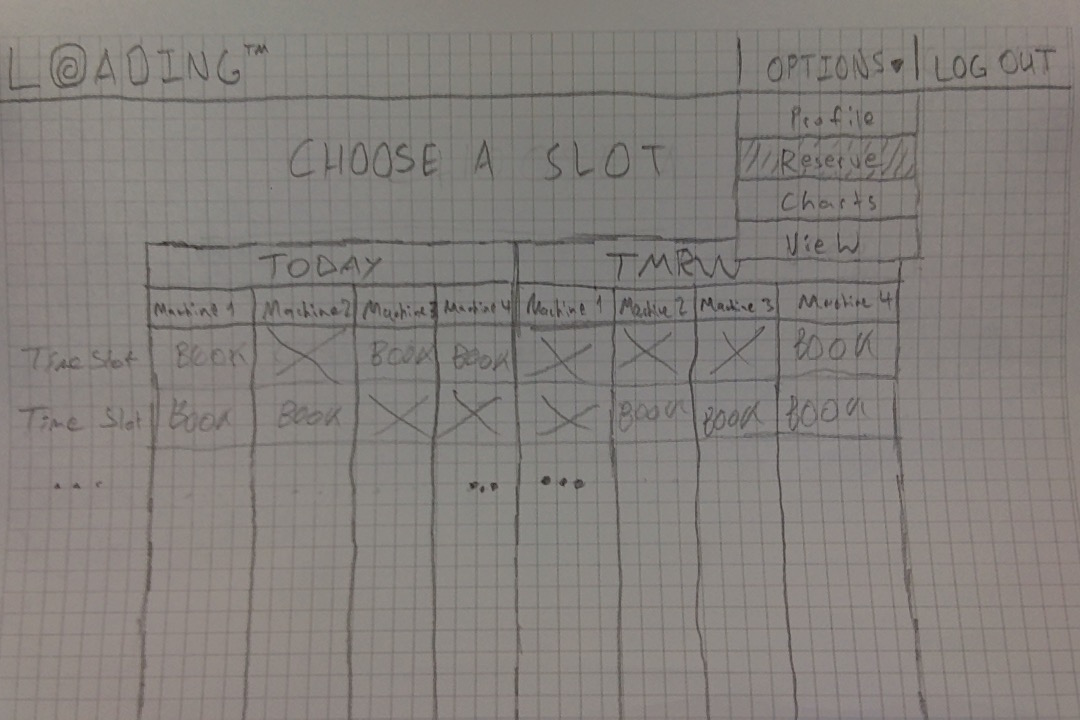 L@ADING™ OPTIONS LOG OUT
Profile
CHOOSE A SLOT Reserve
Charts
View
TODAY TMRW
Machine 1 Machine 2 Machine 3 Machine 4 Machine 1 Machine 2 Machine 3 Machine 4
Time Slot BOOK X BOOK BOOK X X X BOOK
Time Slot BOOK BOOK X X X BOOK BOOK BOOK
... ... ...